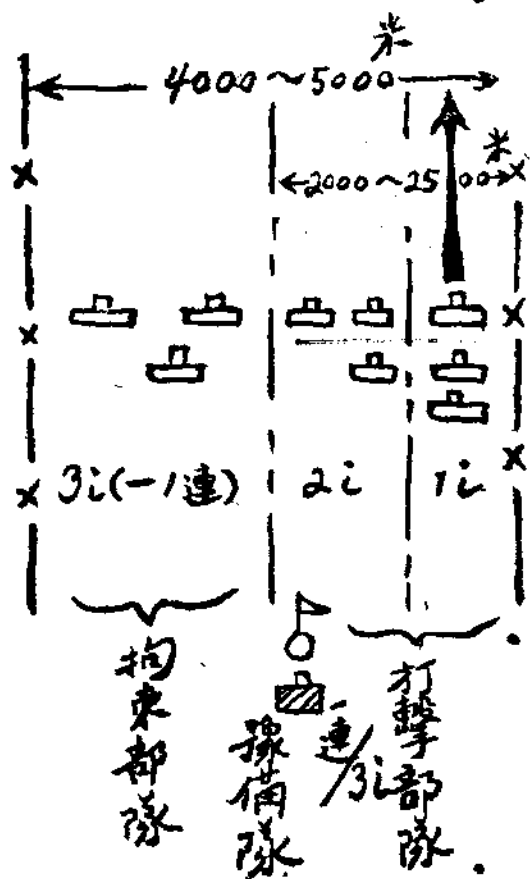 4000～5000米
2000～2500米
3i(一1連)
2i
1i
拘束部隊
豫備隊
一連/3i
打擊部隊